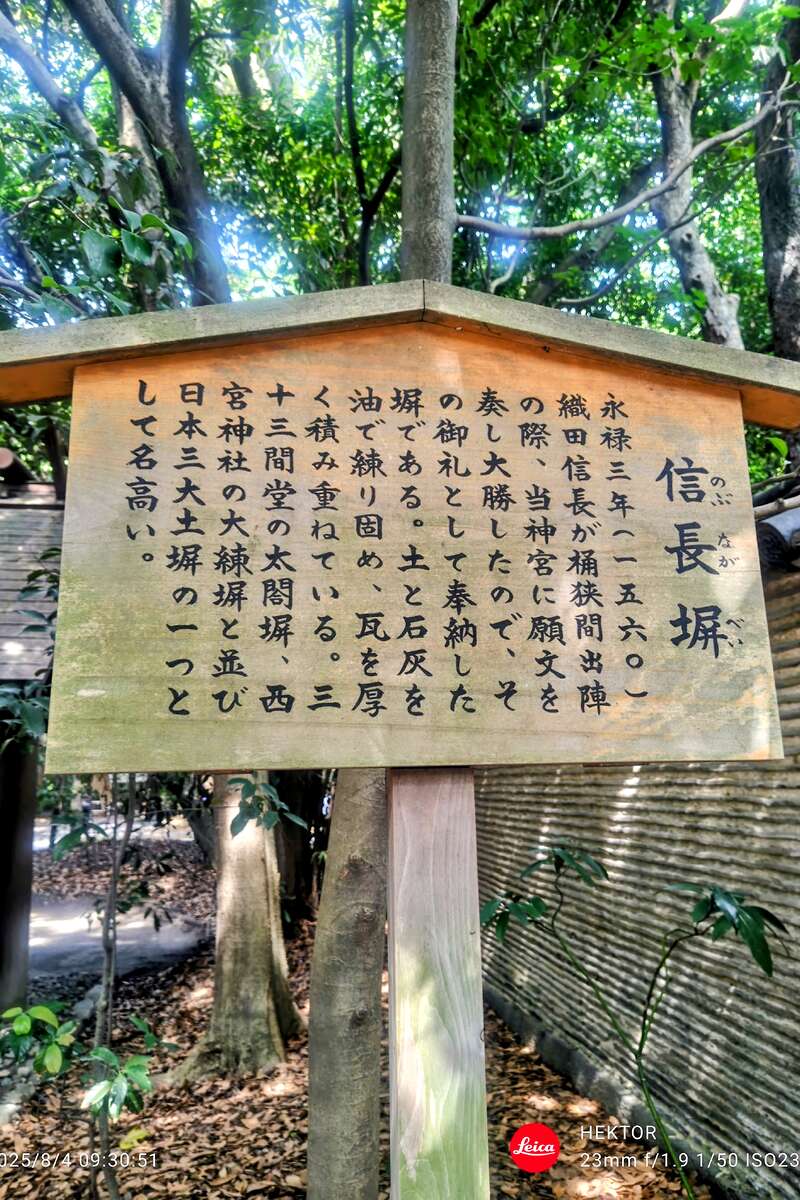 信長塀
のぶながべい
永禄三年(一五六〇)
織田信長が桶狭間出陣
の際、当神宮に願文を
奏し大勝したので、そ
の御礼として奉納した
塀である。土と石灰を
油で練り固め、瓦を厚
く積み重ねている。三
十三間堂の太閤塀、西
宮神社の大練塀と並び
日本三大土塀の一つと
して名高い。
025/8/4 09:30:51
Leica
HEKTOR
23mm f/1.9 1/50 ISO23